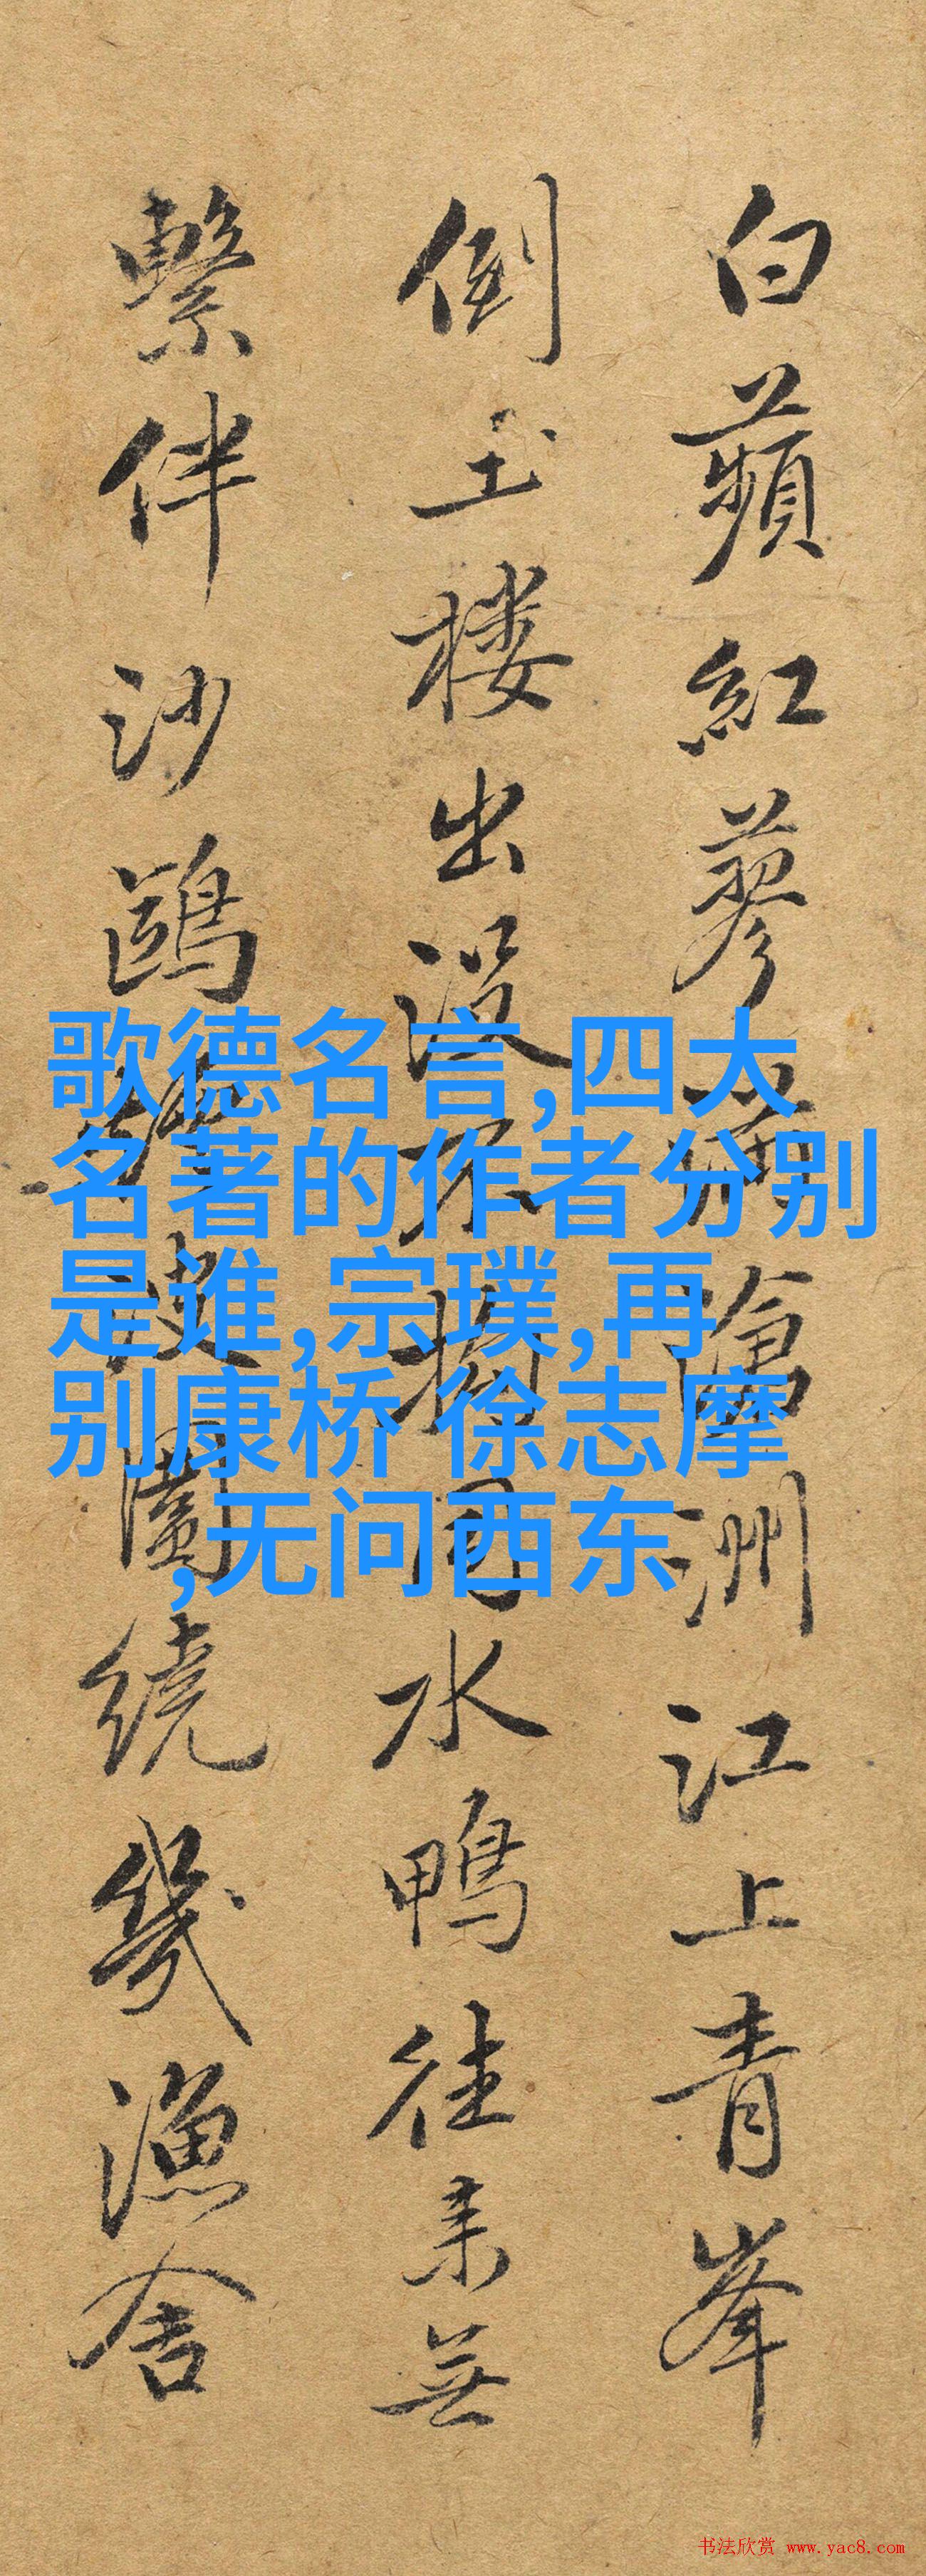 白蘋紅蓼滿滄洲江上青峯
倒玉楼出没不同水鴨往来無
繫伴沙鷗繞幾漁舍
歌德名言,四大
名著的作者分别
是谁,宗璞,再
别康桥 徐志摩
,无问西东
书法欣赏 www.yac8.com